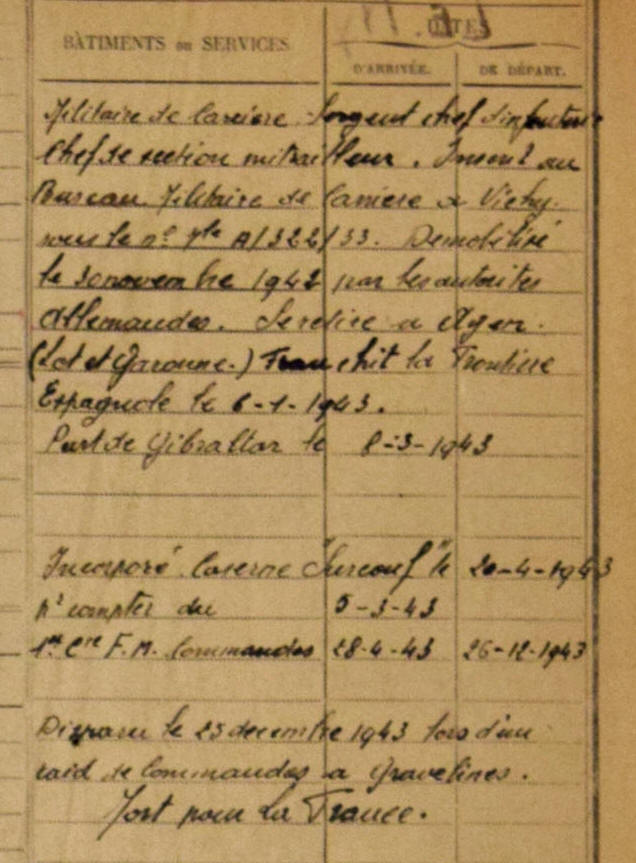 DATES
BÂTIMENTS ou SERVICES
D'ARRIVÉE. DE DÉPART.
Militaire de Carrière. Sergent chef d'infanterie
Chef de section mitrailleur. Inscrit au
Bureau Militaire de Carriere a Vichy.
sous le n° Mle A/322/33. Demobilisé
le 30 novembre 1942 par les autorites
Allemandes. Se retire a Agen.
(Lot et Garonne.) Franchit la Frontiere
Espagnole le 6-1-1943.
Part de Gibraltar le 8-3-1943
Incorporé Caserne "Surcouf" le 20-4-1943
pr compter du 5-3-43
1ère Cie F.M. Commandos 28-4-43 26-12-1943
Disparu le 25 decembre 1943 lors d'un
raid de Commandos a Gravelines.
Mort pour la France.